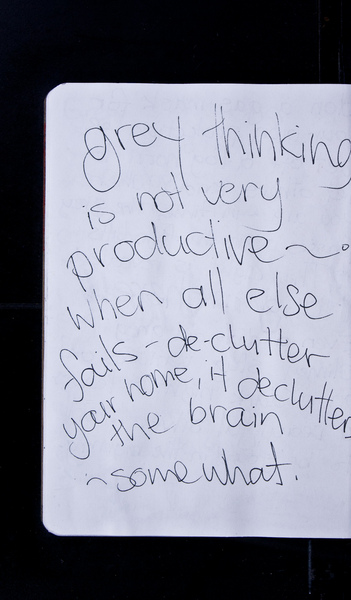 grey thinking
is not very
productive ~.
when all else
fails - de-clutter
your home, it declutters
the brain
~somewhat.